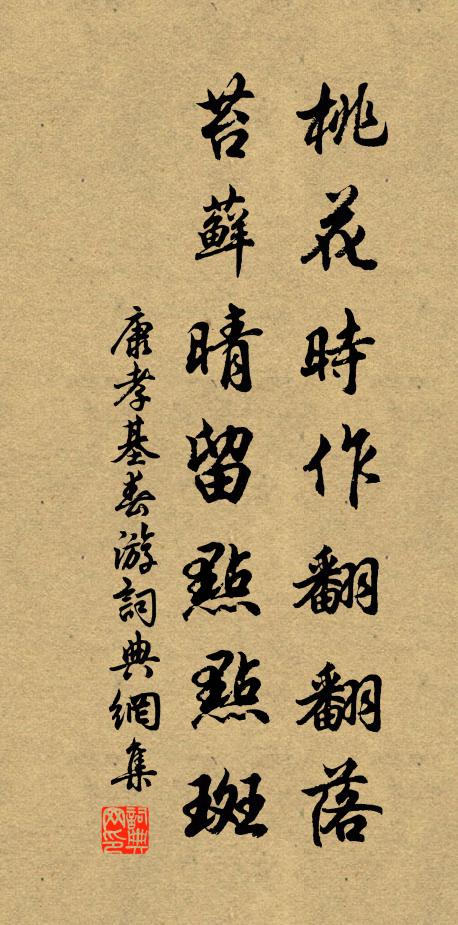 桃花時作翻翻落
苔蘚晴留點點斑
康孝基春游詞典網集
詞典网印